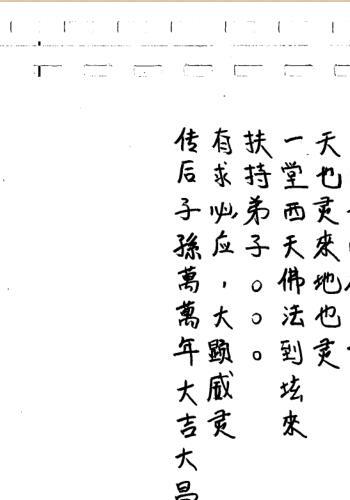 天也灵來地也灵
一堂西天佛法到坛來
扶持弟子。。。
有求必应，大顕威灵
传后子孫萬萬年大吉大昌